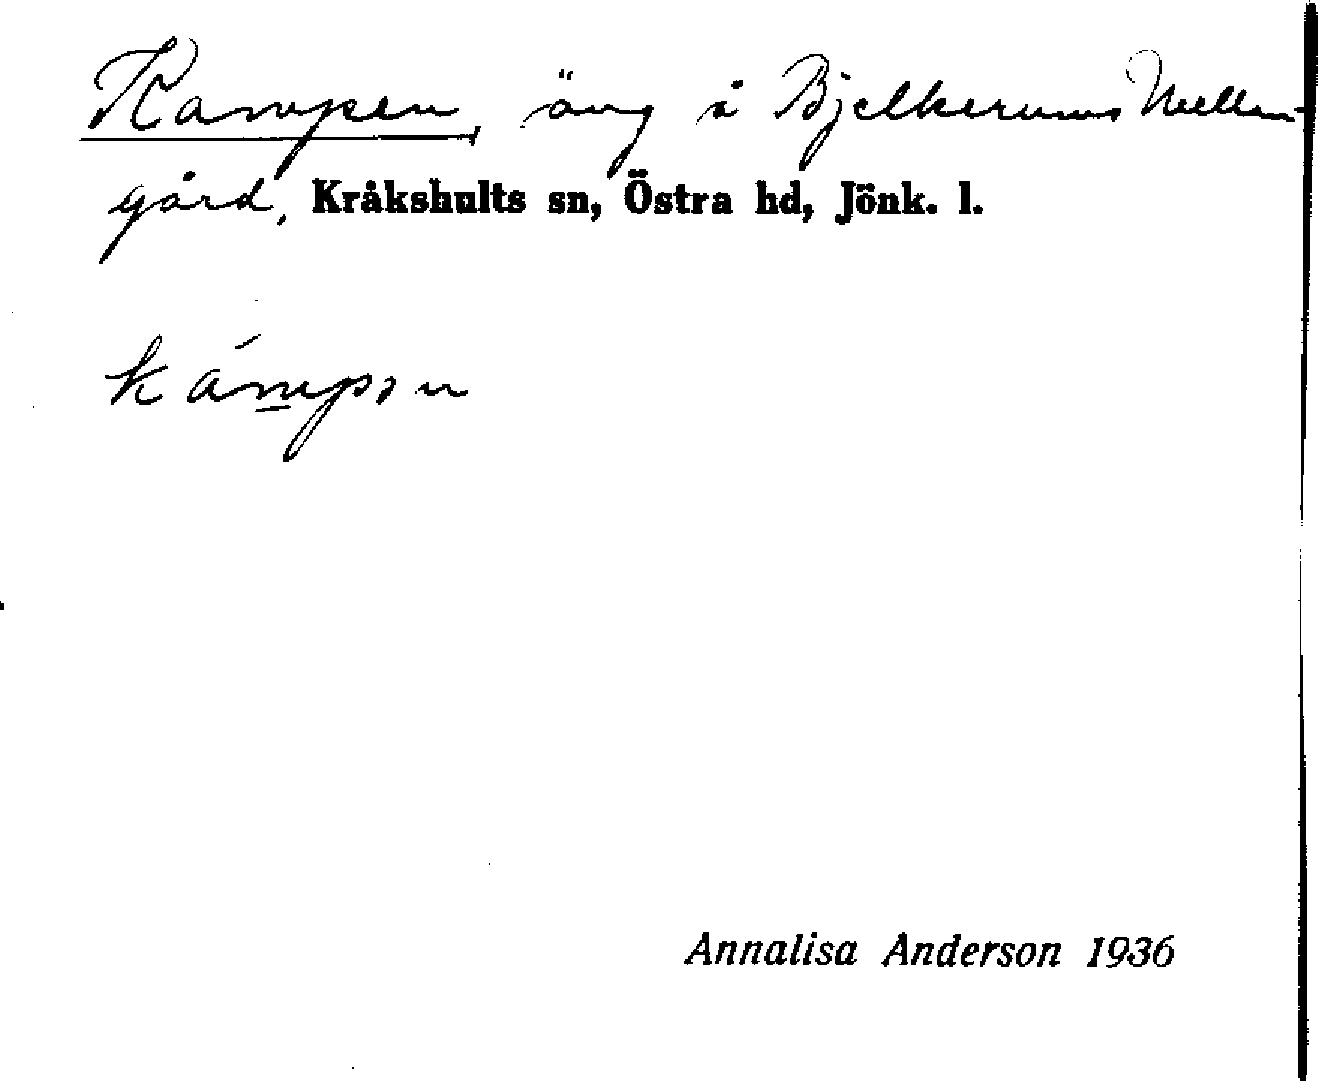 Kampen, äng å Bjelkerums Mellan-
gård, Kråkshults sn, Östra hd, Jönk. l.
kámpən
Annalisa Anderson 1936